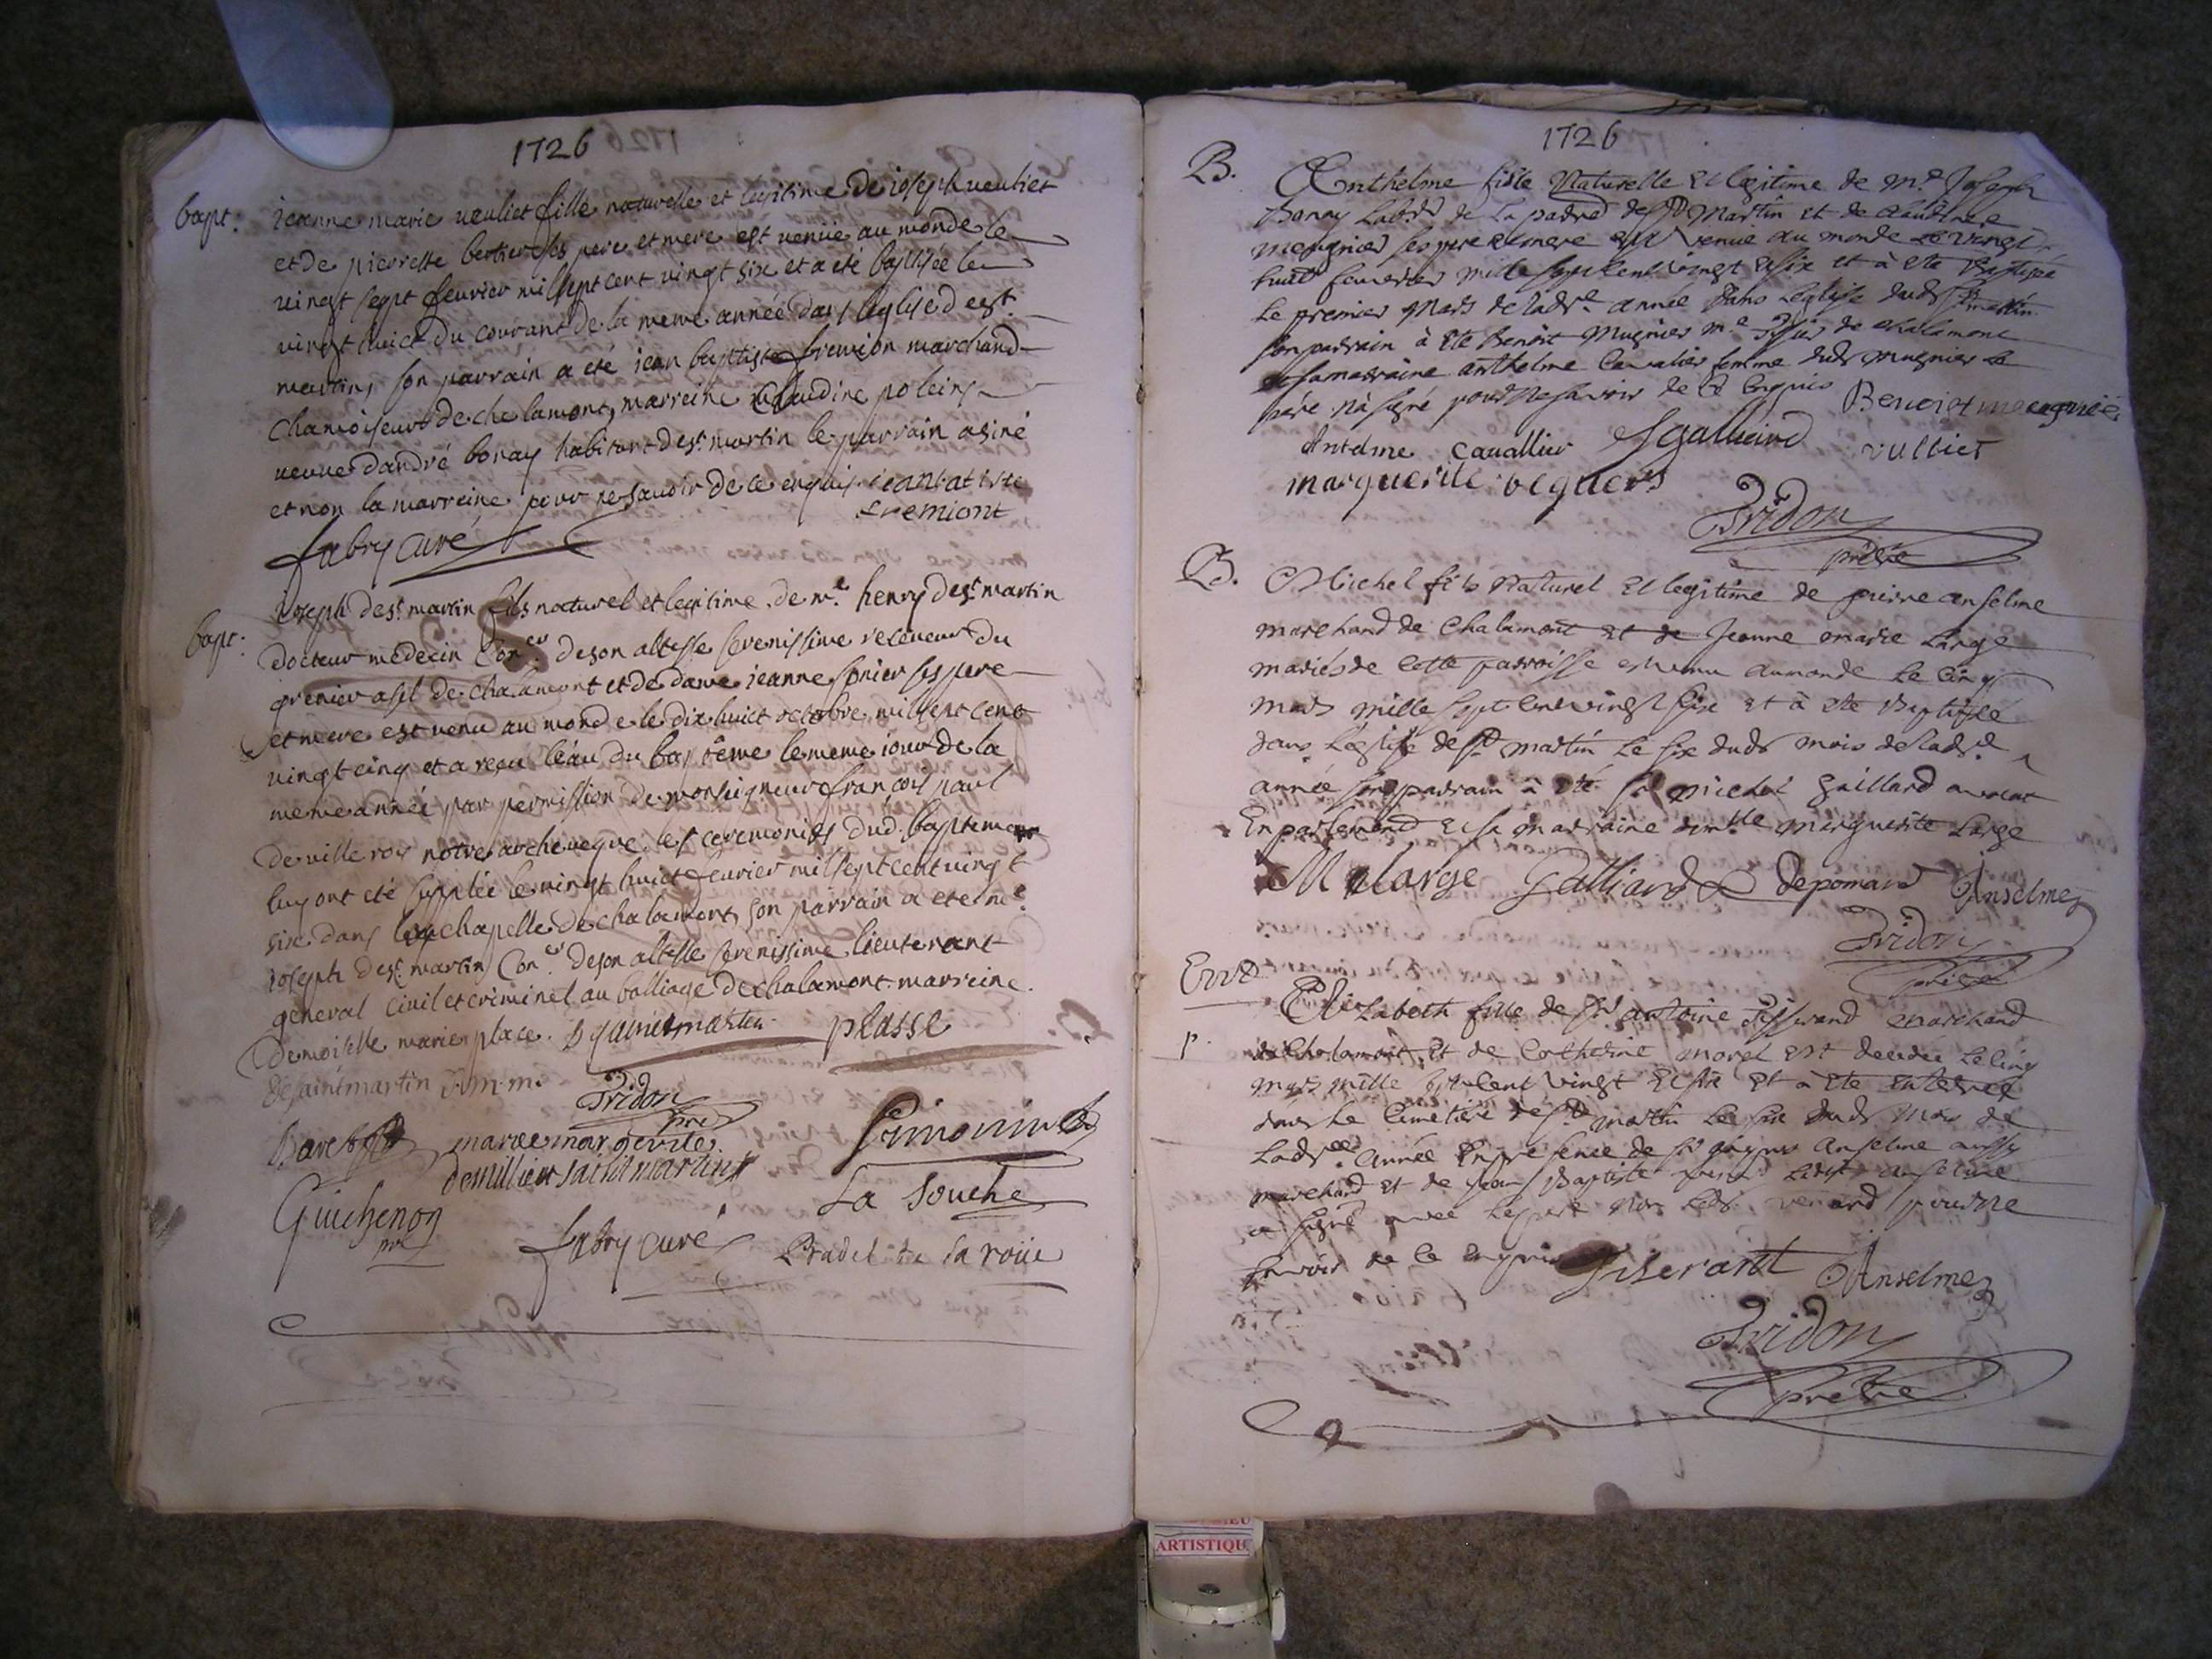 1726
bapt. jeanne marie veuliet fille naturelle et legitime de joseph veuliet
et de pierrette bertier ses pere et mere est venue au monde le
vingt sept fevrier mil sept cent vingt six et a eté baptisée le
vingt huict du courant de la meme année dans l'eglise de st.
martin, son parrain a eté jean baptiste fremion marchand
chamoiseur de chalamont, marreine claudine poleins
veuve d'andré bonay habitant de st. martin le parrain a siné
et non la marreine pour ne savoir de ce enquis. jean batiste
fremiont
fabry curé
bapt. joseph de st. martin fils naturel et legitime de mr. henry de st. martin
docteur medecin Coner. de son altesse serenissime receveur du
grenier a sel de chalamont et de dame jeanne sonier ses pere
et mere est venu au monde le dix huict octobre mil sept cent
vingt cinq et a reçu l'eau du baptême le meme jour de la
meme année par permission de monseigneur françois paul
de ville roy notre archeveque, les ceremonies dud. bapteme
luy ont eté supplée le vingt huict fevrier mil sept cent vingt
six dans la chapelle de chalamont, son parrain a eté me.
joseph de st. martin Coner. de son altesse serenissime lieutenant
general civil et criminel au balliage de chalamont marreine
demoiselle marie place. D sainctmartin plasse
desaintmartin D.m.m.
Pridon
pre
marie margerite
Simonin
demillieu saint martin
La Souche
Guichenon
pre
fabry curé Pradel de la roüe
1726
B. Anthelme fille Naturelle et legitime de Mre Joseph
Bonay de la de St Martin et de claudine
meugnier ses pere et mere est venue au monde le vingt
huit fevrier mille sept cent vingt et six et à ete Baptisée
le premier Mars de ladte année dans l'eglise dudt St martin
son parrain à ete Benoit Mugnier me de chalamont
sa marraine anthelme Cavalier femme dudt mugnier le
père n'a signé pour ne savoir de ce enquis Benoist meugnié
Antelme cavallier Galliard vulliet
marguerite
Pridon
prêtre
B. Michel fils Naturel et legitime de pierre anselme
marchand de Chalamont et de Jeanne marie Large
mariés de cette parroisse est venu au monde le cinq
mars mille sept cent vingt six et à ete Baptisé
dans l'eglise de St martin le six dudt mois de ladte
année son parrain à eté Sr michel gaillard avocat
En parlement et sa marraine demlle marguerite Large
M large Galliard depomard Anselme
Pridon
prêtre
Elizabeth fille de Sr antoine Tisserand marchand
de Chalamont et de Catherine morel est decedée le cinq
mars mille sept cent vingt et six et à ete enterrée
dans le Cimetière de St martin le six dudt mois de
ladte année En presence de Sr anselme aussy
marchand et de Jean Baptiste ledt anselme
a signé avec le pere non ledt pour ne
savoir de ce enquis Tiserant Anselme
Pridon
prêtre
ARTISTIQU